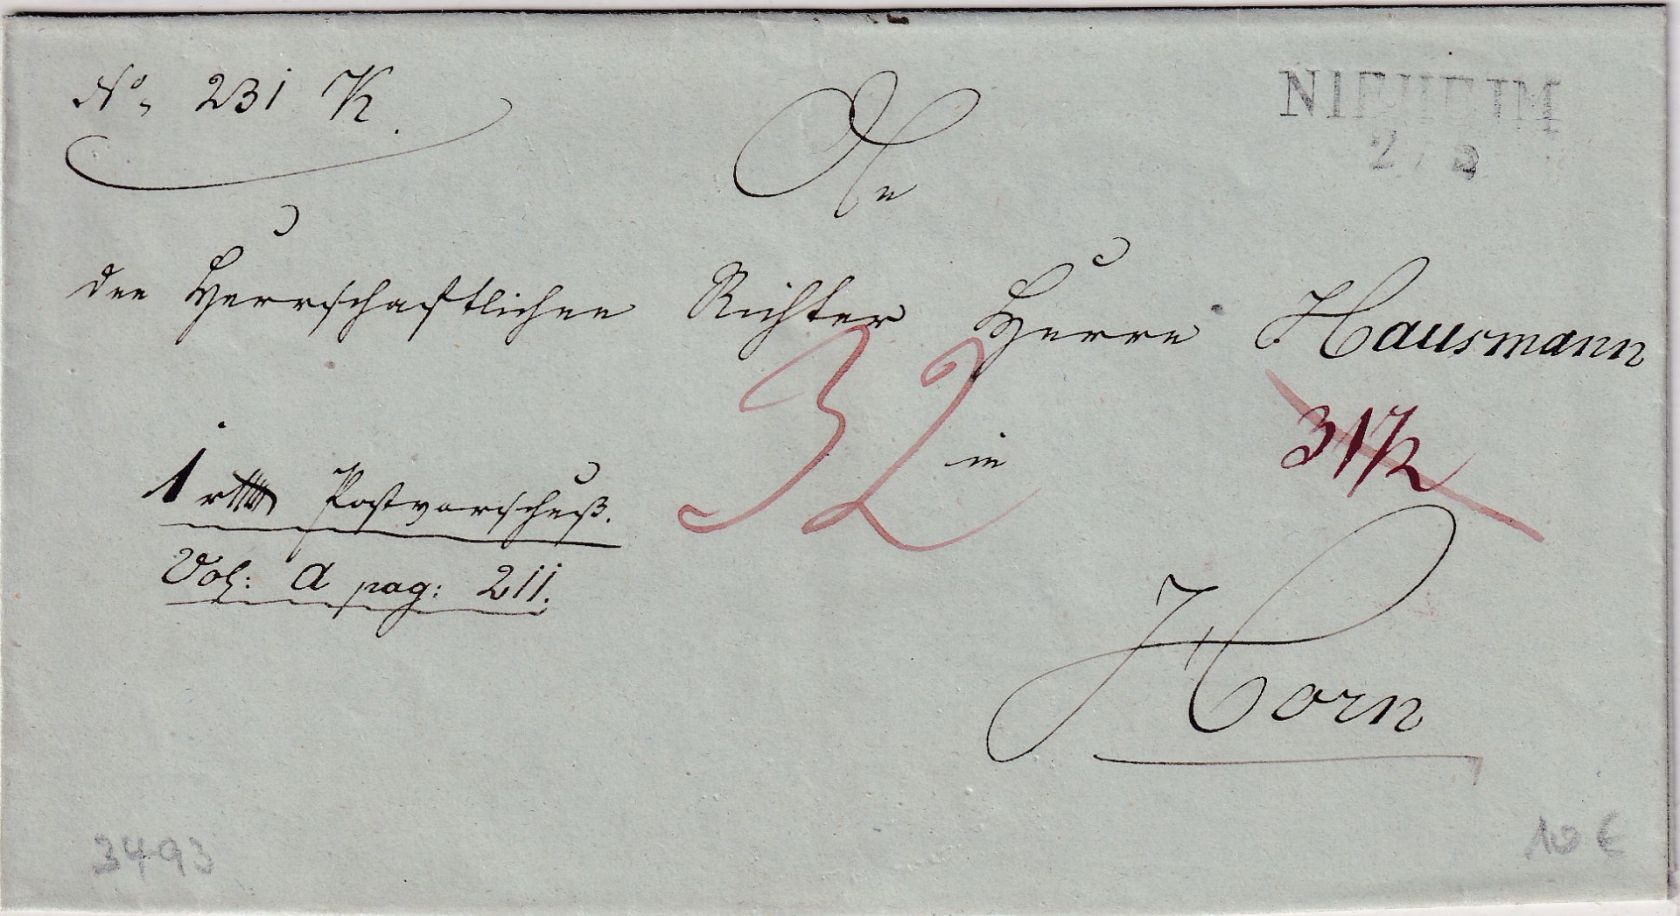 No. 231 K.
NIEHEIM
2/5
An
den Herrschaftlichen Richter Herrn Hausmann
32
in
31 K
1 rtlr Postvorschuß.
Vol: A pag: 211.
Horn
3493
10 €